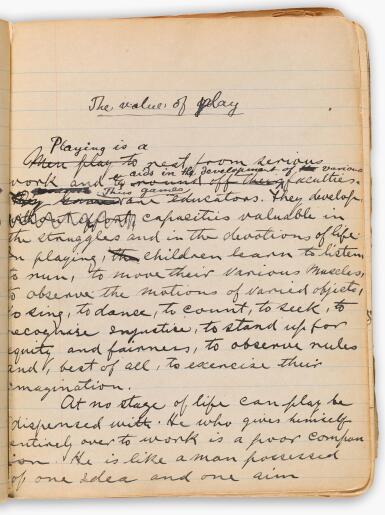 The value of play
Playing is a
Men play to rest from serious
aids in the development of the various
work and to round off their faculties.
Thus games
are educators. They develop
capacities valuable in
the struggles and in the devotions of life
In playing, the children learn to listen
to run, to move their various muscles,
to observe the motions of varied objects,
to sing, to dance, to count, to seek, to
recognise injustice, to stand up for
equity and fairness, to observe rules
and, best of all, to exercise their
imagination.
At no stage of life can play be
dispensed with. He who gives himself
entirely over to work is a poor compan
ion. He is like a man possessed
of one idea and one aim